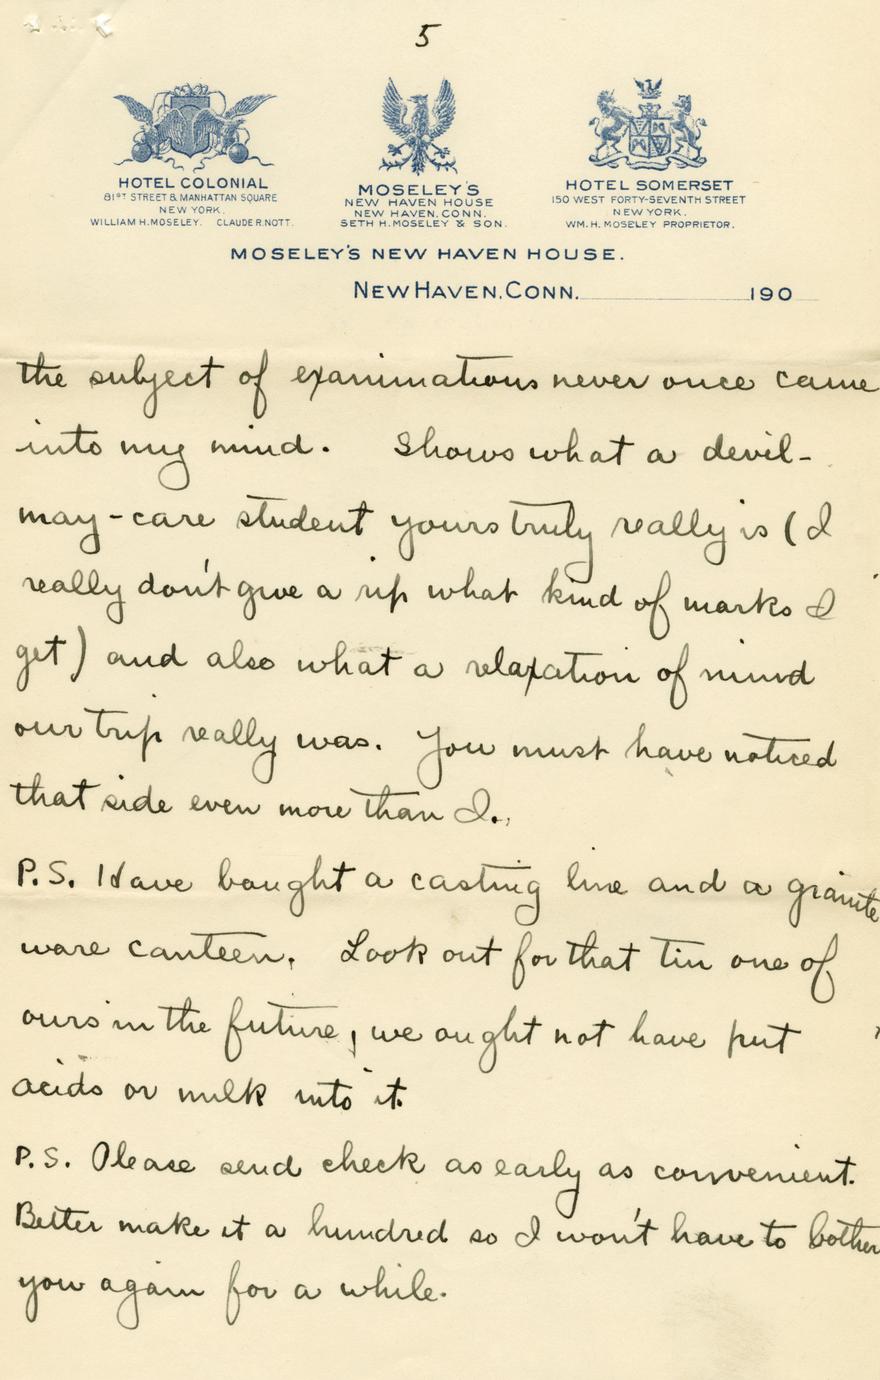 5
HOTEL COLONIAL
81ST STREET & MANHATTAN SQUARE
NEW YORK.
WILLIAM H. MOSELEY. CLAUDE R. NOTT.
MOSELEY'S
NEW HAVEN HOUSE
NEW HAVEN, CONN.
SETH H. MOSELEY & SON.
HOTEL SOMERSET
150 WEST FORTY-SEVENTH STREET
NEW YORK.
WM. H. MOSELEY PROPRIETOR.
MOSELEY'S NEW HAVEN HOUSE.
NEW HAVEN, CONN. 190
the subject of examinations never once came
into my mind. Shows what a devil-
may-care student yours truly really is (I
really don't give a rip what kind of marks I
get) and also what a relaxation of mind
our trip really was. You must have noticed
that side even more than I.
P.S. Have bought a casting line and a granite
ware canteen. Look out for that tin one of
ours in the future, we ought not have put
acids or milk into it.
P.S. Please send check as early as convenient.
Better make it a hundred so I won't have to bother
you again for a while.